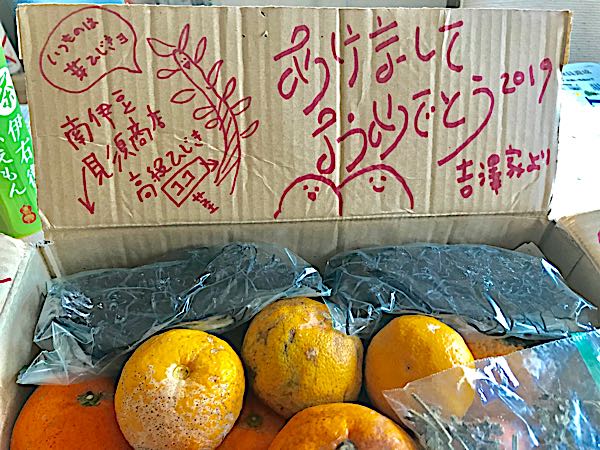 いつものは
芽ひじきヨ
南伊豆
見須商店
高級ひじき
ココ
あけまして
おめでとう
2019
吉澤家より
茶
伊右衛
えもん